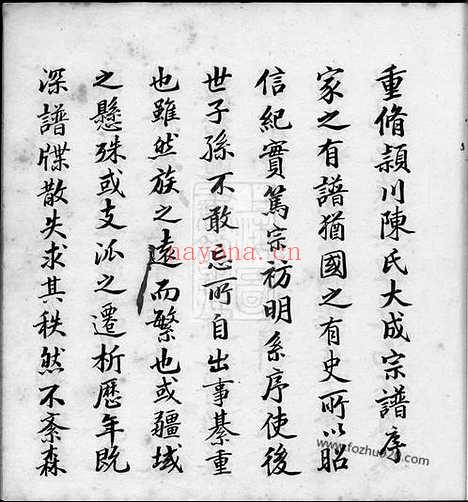 重脩頴川陳氏大成宗譜序
家之有譜猶國之有史所以昭
信紀實篤宗訪明系序使後
世子孫不敢忘所自出事綦重
也雖然族之遠而繁也或疆域
之懸殊或支派之遷析歷年既
深譜牒散失求其秩然不紊森
nayona.cn
www.fozhu920.com